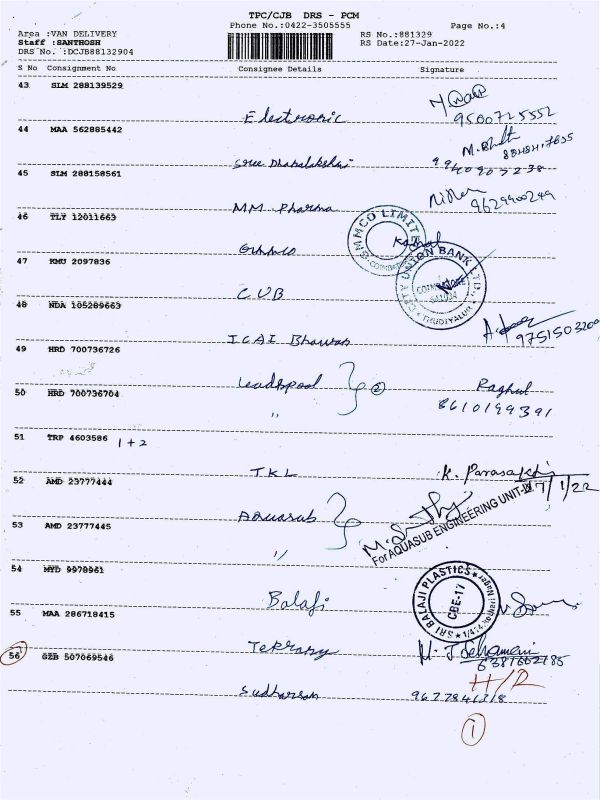 TPC/CJB DRS - PCM
Phone No.:0422-3505555
Page No.:4
Area :VAN DELIVERY
Staff :SANTHOSH
DRS No. :DCJB88132904
RS No.:881329
RS Date:27-Jan-2022
S No Consignment No Consignee Details Signature
43 SLM 288139529
Electronic 9500725552
44 MAA 562885442
M. 
Sree Dhanalakshmi 9940905238
45 SLM 288158561
MM Pharma 9629900249
46 TLY 12011663
GMMCO LIMITED
COIMBATORE
Gmmco Kamal
47 KMU 2097836
CITY UNION BANK LTD.
COIMBATORE
641034
THUDIYALUR
CUB
48 NDA 105289663
ICAI Bhawan 9751503200
49 HRD 700736726
Leaderpool 2 Raghul
50 HRD 700736704
" 8610199391
51 TRP 4603586 1+2
TKL K. Parasakthi
27/1/22
52 AMD 23777444
Aquasub
For AQUASUB ENGINEERING UNIT-IV
53 AMD 23777445
"
54 MYD 9978961
SRI BALAJI PLASTICS
CBE-17
Balaji
55 MAA 286718415
6381662185
56 GZB 507069546
H/R
Sudharsan
1